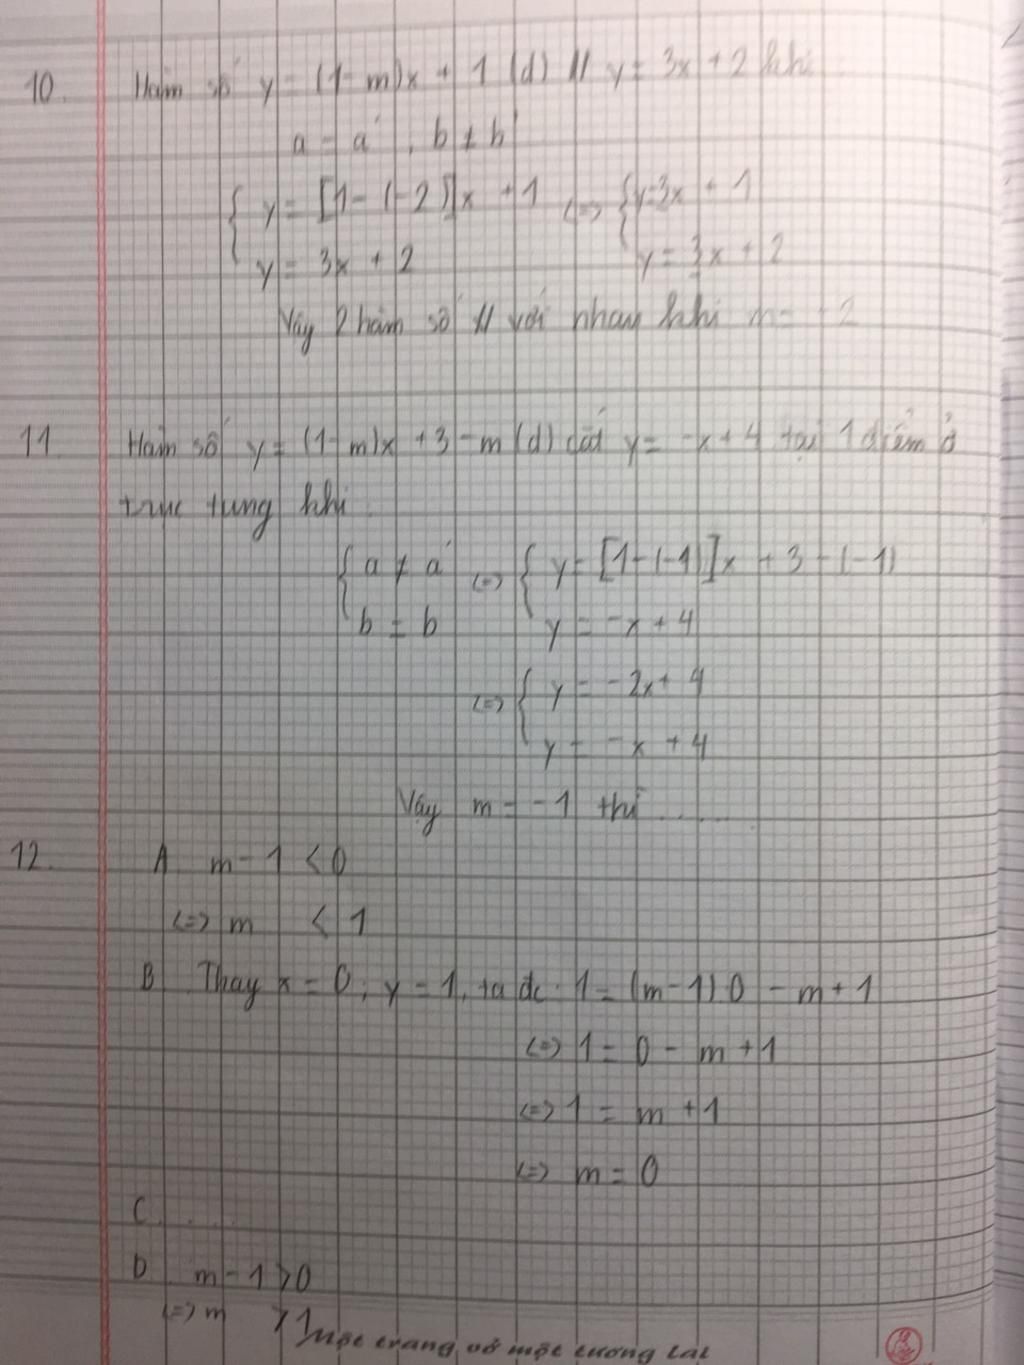 10. Hàm số y = (1-m)x + 1 (d) // y = 3x + 2 khi
a = a', b ≠ b'
{ y = [1-(-2)]x + 1 <=> { y=3x + 1
y = 3x + 2 y = 3x + 2
Vậy 2 hàm số // với nhau khi m = -2
11. Hàm số y = (1-m)x + 3 - m (d) cắt y = -x + 4 tại 1 điểm ở
trục tung khi
{ a ≠ a' <=> { y = [1-(-1)]x + 3 - (-1)
b = b' y = -x + 4
<=> { y = -2x + 4
y = -x + 4
Vậy m = -1 thì ......
12. A m - 1 < 0
<=> m < 1
B Thay x = 0; y = 1, ta đc: 1 = (m-1).0 - m + 1
<=> 1 = 0 - m + 1
<=> 1 = m + 1
<=> m = 0
C .....
D m - 1 > 0
<=> m > 1
Một trang vở một tương lai